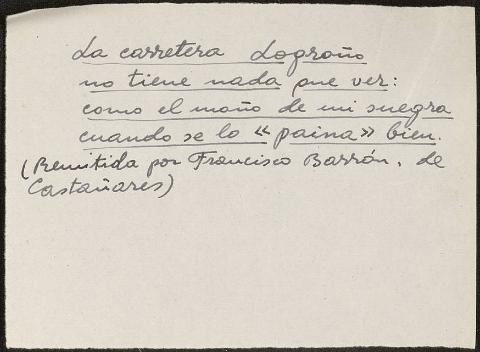 La carretera Logroño
no tiene nada que ver:
como el moño de mi suegra
cuando se lo « paina » bien.
(Remitida por Francisco Barrón, de
Castañares)